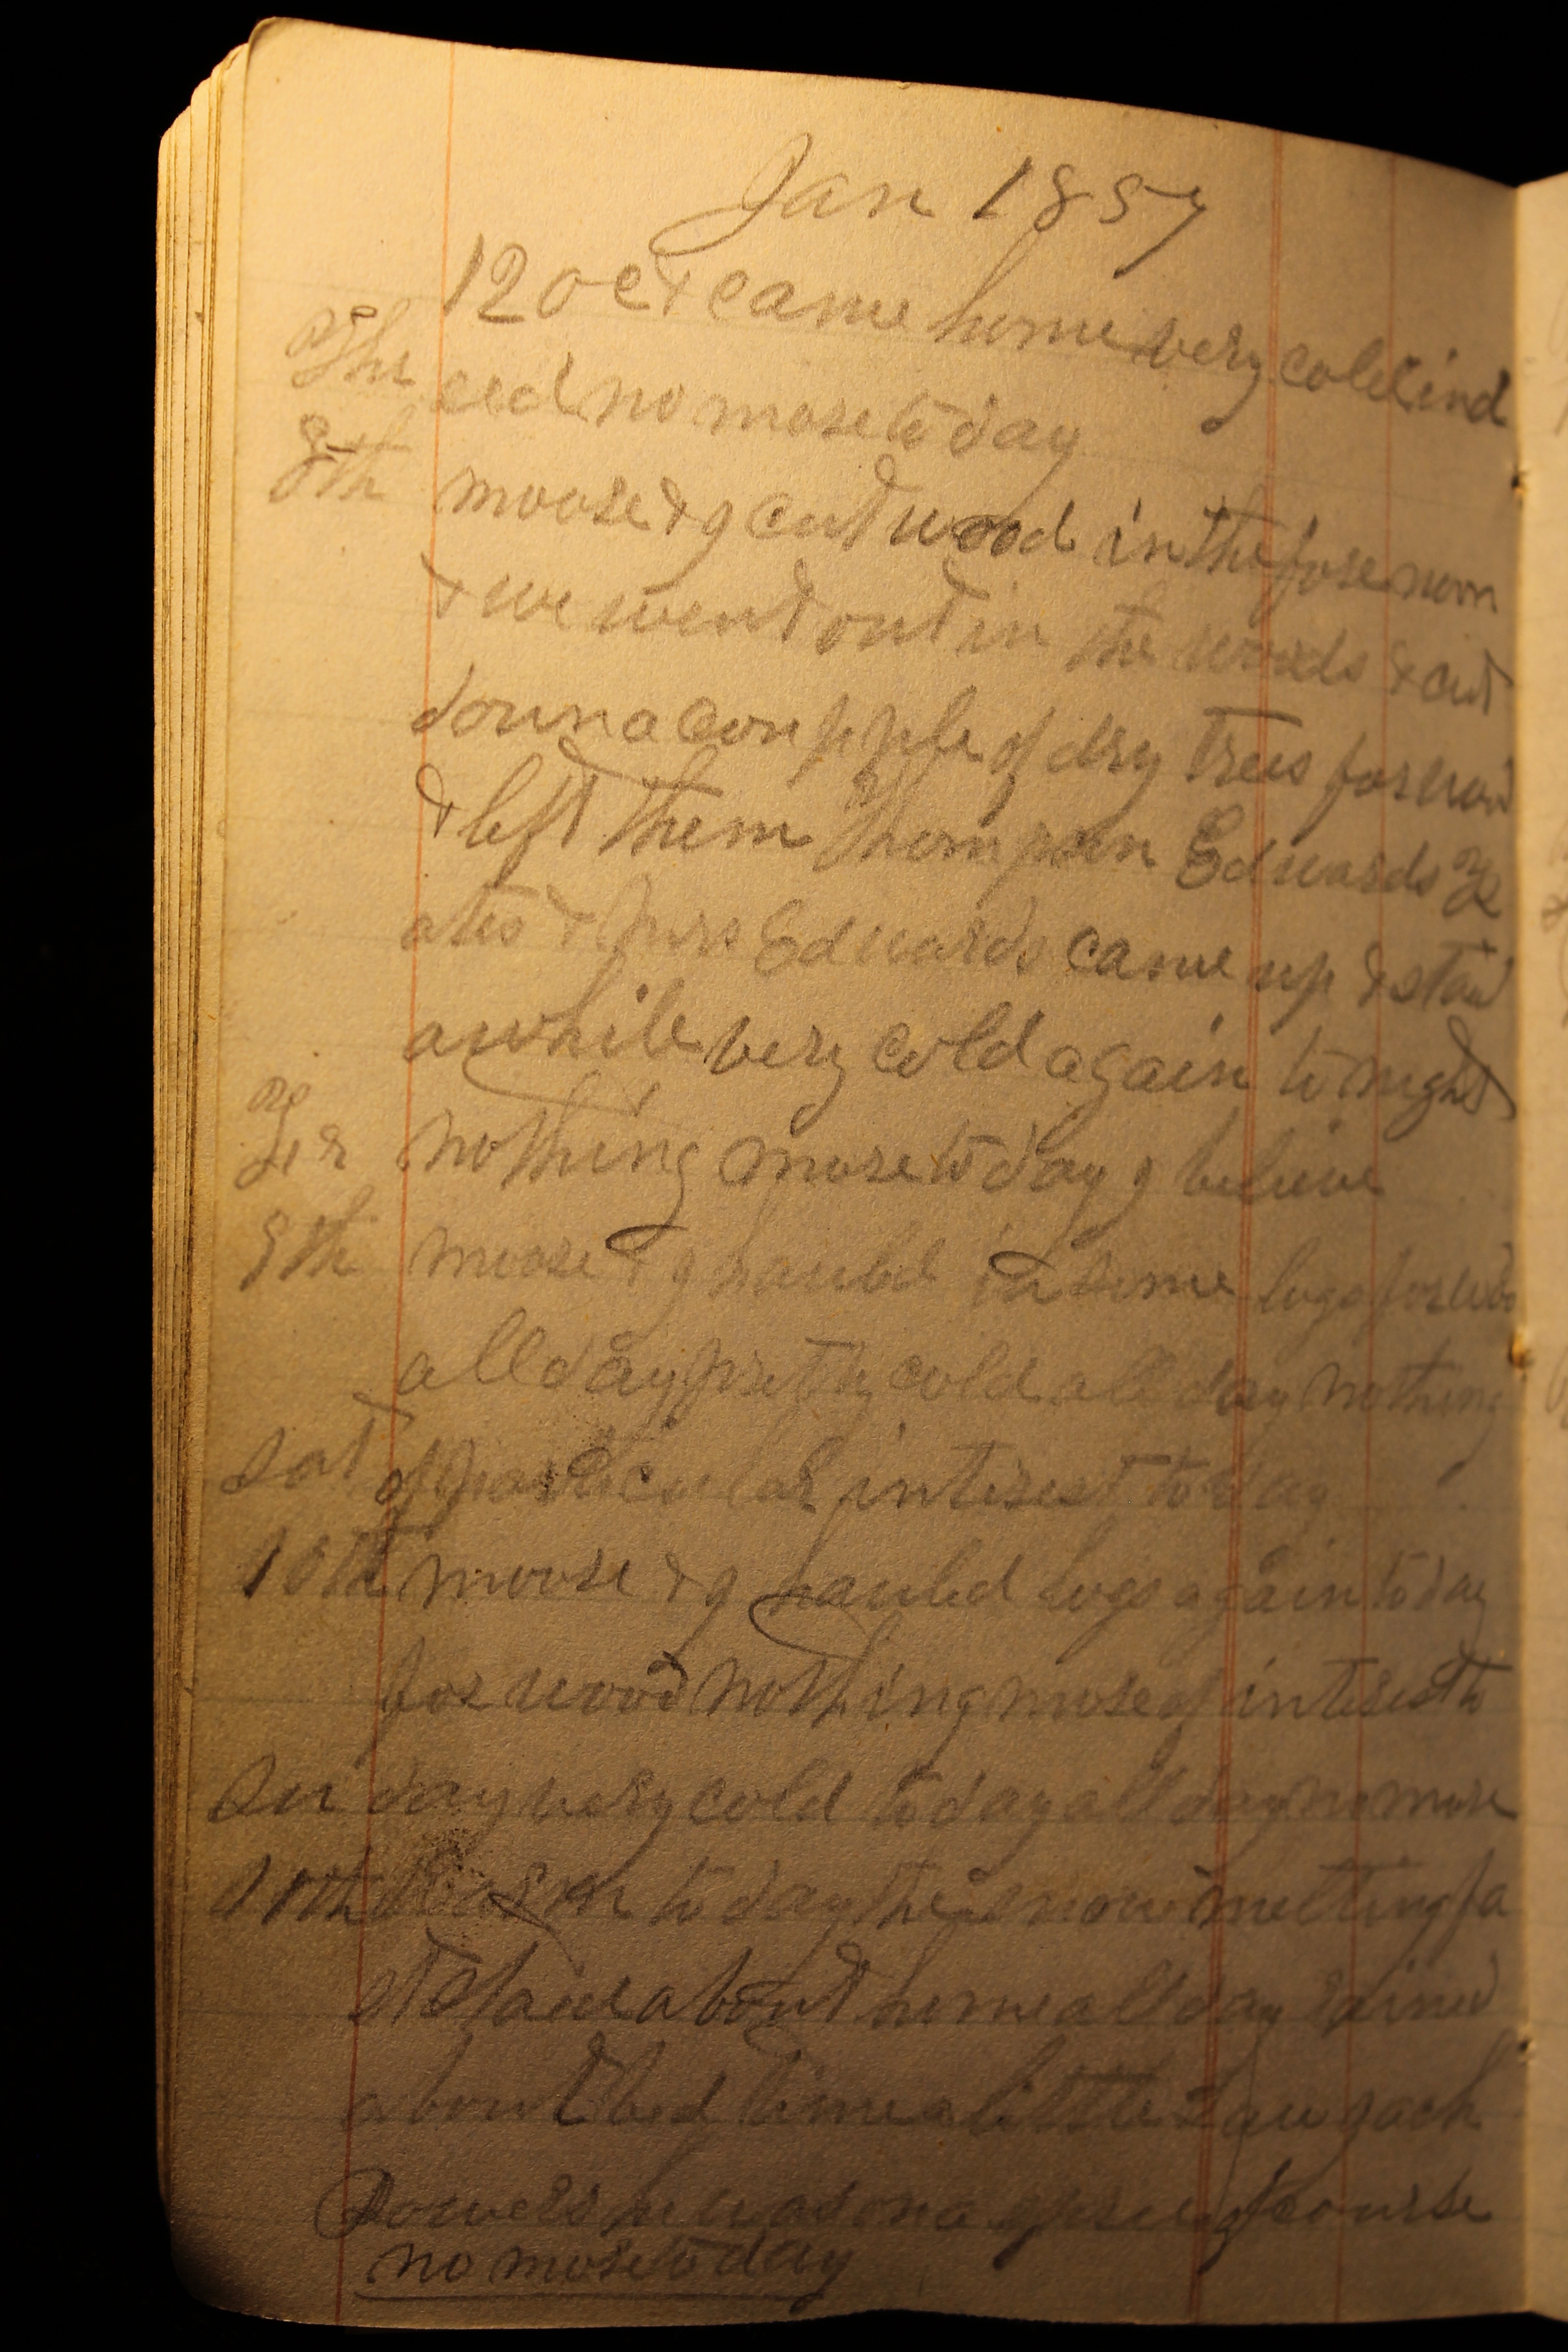 Jan 1857
12 oct came home very cold ind
Thu eed no more to day
8th moose & I cut wood in the fore noon
& we went out in the woods & cut
down a coupple of dry trees for wood
& left them Thompson Edwards Ye
ates & Mrs Edwards came up & staid
awhile very cold again to night
Fir nothing more to day I believe
9th moose & I hauled in some logs for wood
all day pretty cold all day nothing
Sat of particular interest to day
10th moose & I hauled logs again to day
for wood nothing more of interest to
Sun day very cold to day all day no more
11th warm to day the snow melting fa
st staid about home all day rained
about bed time a little saw Jack
Powers he was on a spree of course
no more to day